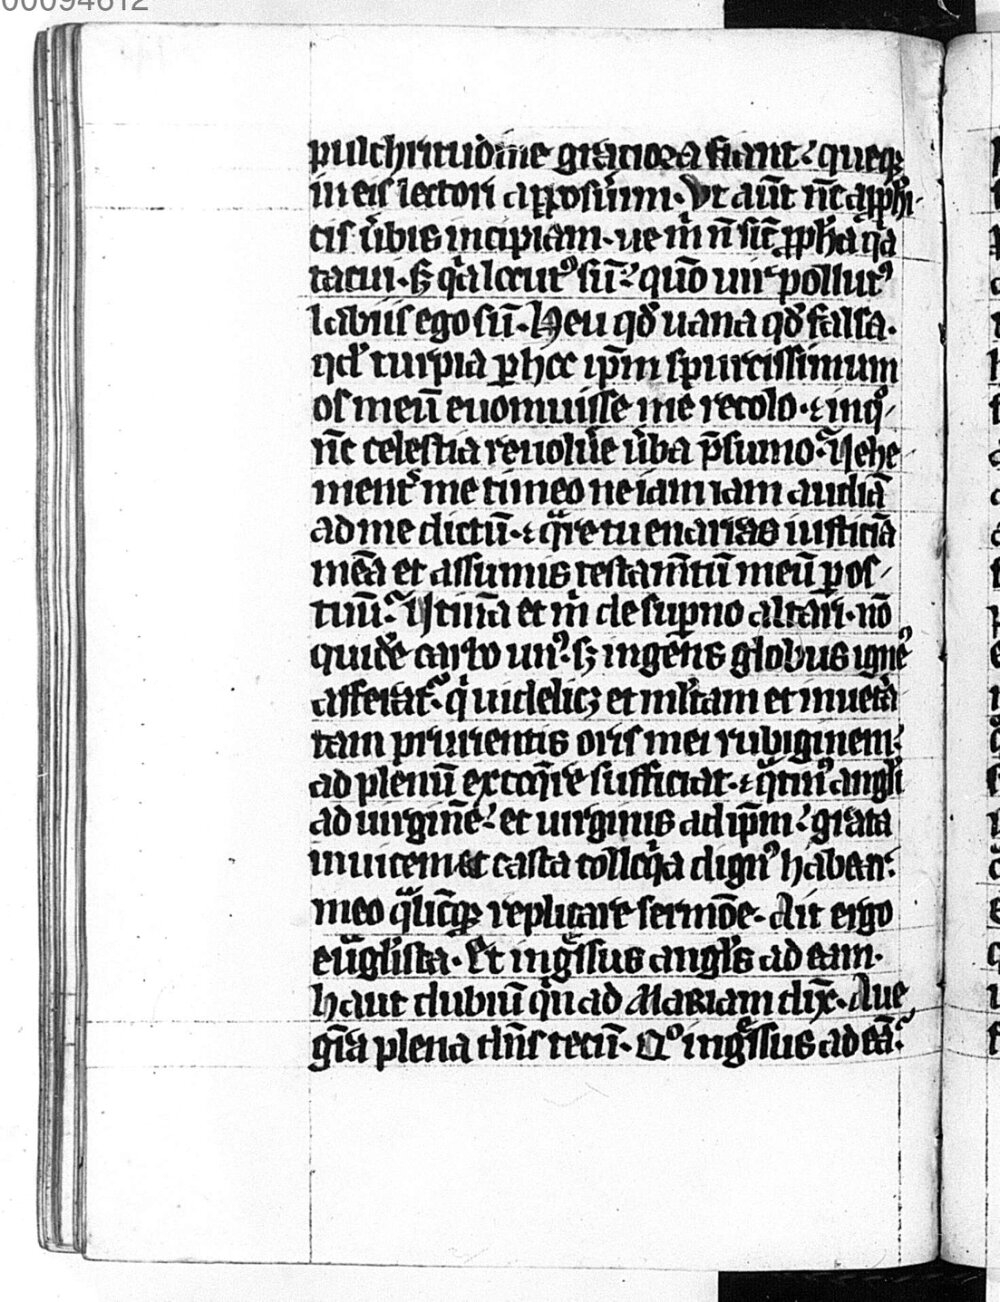 00094612
pulchritudīne graciora fiant? queq;
in eis lectori appoſuim̄. Vt aūt nc̄ a ꝓph̓i
cis ūbis incipiam. ue m̓ n̄ sic̄ ꝓph̓a q̓a
tacui. sꝫ q̓a locutꝰ sū? quō uir pollutꝰ
labiis ego sū. Heu qd̓ uana qd̓ falsa.
qd̓ turpia ꝑ hoc ip̄m spurcissimum
os meū euomuisse me recolo. ⁊ in q̊
nc̄ celestia reuolūe ūba p̄sumo? Uehe
ment̓ me timeo ne iam iam audiā
ad me dictū. ⁊ q̄re tu enarras iusticiā
meā et assumis testam̄tū meū ꝑ os
tuū? Utinā et m̓ de sup̄no altari. nō
quidē carbo unꝰ. sꝫ ingens globus igneꝰ
afferat̓. q̓ uidelicꝫ et ml̓tam et inuet̓a
tam prurientis oris mei rubiginem?
ad plenū excoq̄re sufficiat. ⁊ q̓tinꝰ angl̓i
ad uirginē? et uirginis ad ip̄m? grata
inuicem et casta colloq̓a dignꝰ habear?
meo q̓licūq; replicare sermōe. Ait ergo
eūgl̓ista. Et ing̓ssus angl̓s ad eam.
haut dubiū qn̓ ad MARIAM dix̄. Aue
gr̄a plena dn̄s tecū. Qͦ ing̓ssus ad eā?